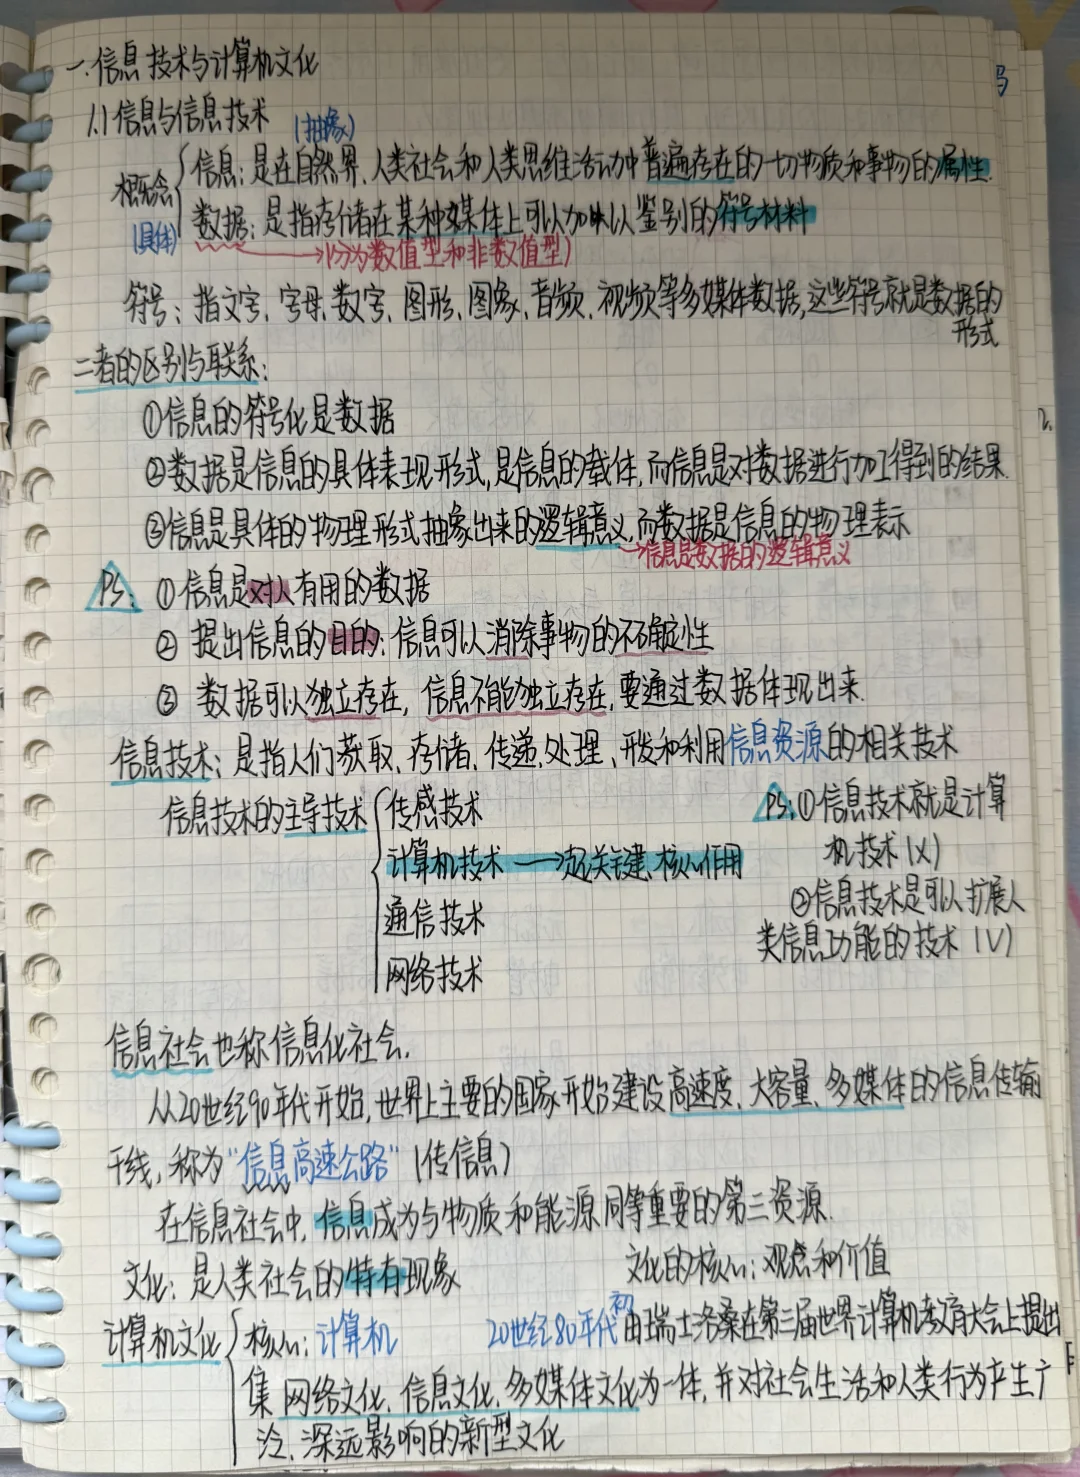 一.信息技术与计算机文化
1.1信息与信息技术
(抽象)
概念
信息:是在自然界、人类社会和人类思维活动中普遍存在的一切物质和事物的属性.
数据:是指存储在某种媒体上可以加以鉴别的符号材料
(具体)
→(分为数值型和非数值型)
符号:指文字、字母、数字、图形、图象、音频、视频等多媒体数据,这些符号就是数据的
形式
二者的区别与联系:
①信息的符号化是数据
②数据是信息的具体表现形式,是信息的载体,而信息是对数据进行加工得到的结果.
③信息是具体的物理形式抽象出来的逻辑意义,而数据是信息的物理表示
→信息是数据的逻辑意义
PS: ①信息是对人有用的数据
② 提出信息的目的:信息可以消除事物的不确定性
③ 数据可以独立存在,信息不能独立存在,要通过数据体现出来.
信息技术:是指人们获取、存储、传递、处理、开发和利用信息资源的相关技术
信息技术的主导技术
传感技术
计算机技术→起关键、核心作用
通信技术
网络技术
PS:①信息技术就是计算
机技术(X)
②信息技术是可以扩展人
类信息功能的技术(V)
信息社会也称信息化社会.
从20世纪90年代开始,世界上主要的国家开始建设高速度、大容量、多媒体的信息传输
干线,称为"信息高速公路"(传信息)
在信息社会中,信息成为与物质和能源同等重要的第三资源.
文化:是人类社会的特有现象
文化的核心:观念和价值
计算机文化
核心:计算机
20世纪80年代初由瑞士洛桑在第三届世界计算机教育大会上提出
集网络文化、信息文化、多媒体文化为一体,并对社会生活和人类行为产生广
泛、深远影响的新型文化